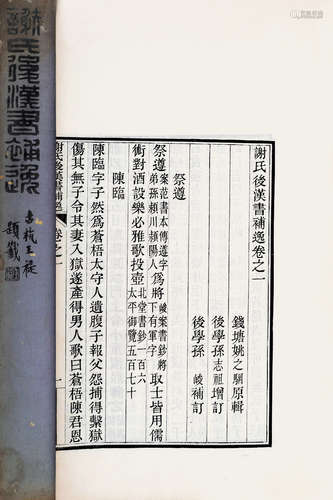 謝氏後漢書補逸
謝氏後漢書補逸卷之一
錢塘姚之駰原輯
後學孫志祖增訂
後學孫峻補訂
祭遵
祭遵案范書本傳遵字弟孫潁川潁陽人為將軍取士皆用儒
術對酒設樂必雅歌投壺北堂書鈔一百六太平御覽五百七十
陳臨
陳臨字子然為蒼梧太守人遺腹子報父怨捕得繫獄
傷其無子令其妻入獄遂產得男人歌曰蒼梧陳君恩
謝氏後漢書補逸 卷之一
一